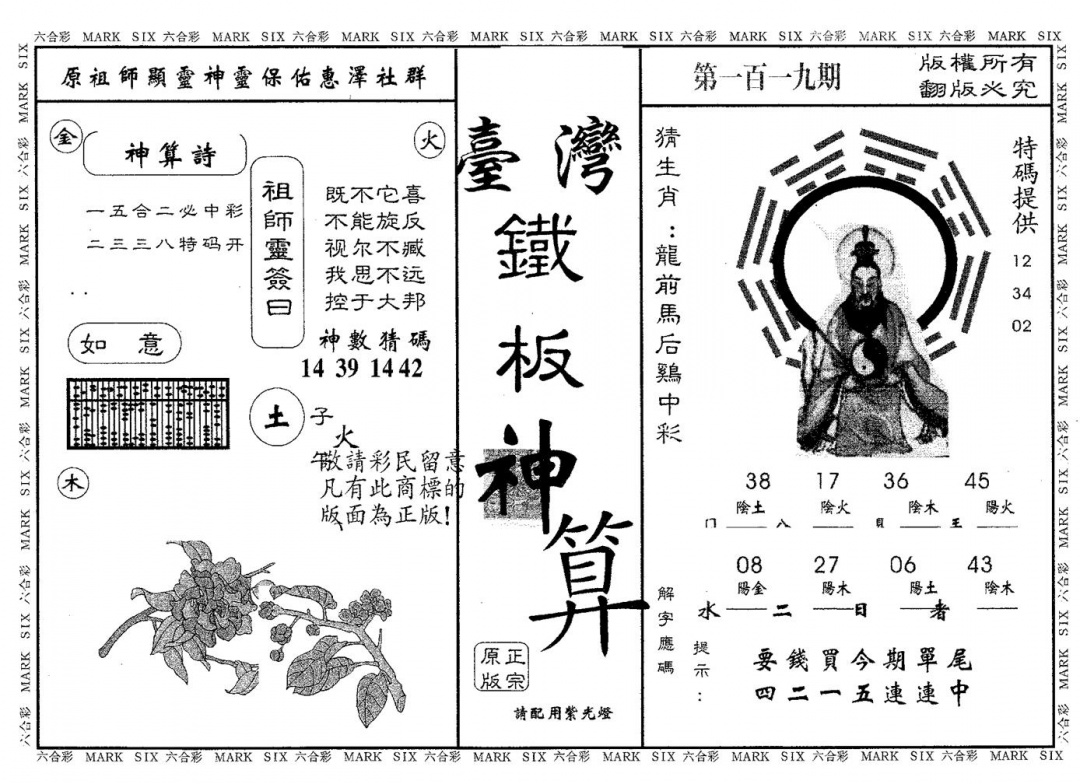 六合彩 MARK SIX 六合彩 MARK SIX 六合彩 MARK SIX 六合彩 MARK SIX 六合彩 MARK SIX 六合彩 MARK SIX 六合彩 MARK SIX 六合彩 MARK SIX
原祖師顯靈神靈保佑惠澤社群
金
火
神算詩
一五合二必中彩
二三三八特码开
祖師靈簽曰
既不它喜
不能旋反
视尔不臧
我思不远
控于大邦
神數猜碼
14 39 14 42
如意
土
木
子
火
午
敬請彩民留意
凡有此商標的
版面為正版!
臺灣
鐵
板
神
算
正宗
原版
請配用紫光燈
第一百一九期
版權所有
翻版必究
猜生肖:龍前馬后鷄中彩
特碼提供
12
34
02
38 17 36 45
陰土 陰火 陰木 陽火
门 八 貝 王
08 27 06 43
陽金 陽木 陽土 陰木
水 二 日 者
解字應碼
提示:
要錢買今期單尾
四二一五連連中
六合彩 MARK SIX 六合彩 MARK SIX 六合彩 MARK SIX 六合彩 MARK SIX 六合彩 MARK SIX 六合彩 MARK SIX 六合彩 MARK SIX 六合彩 MARK SIX